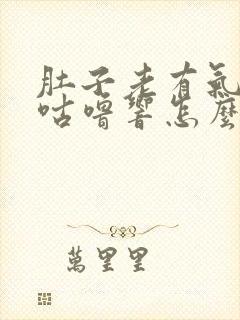 肚子老有氣
咕嚕響怎麼
萬里里